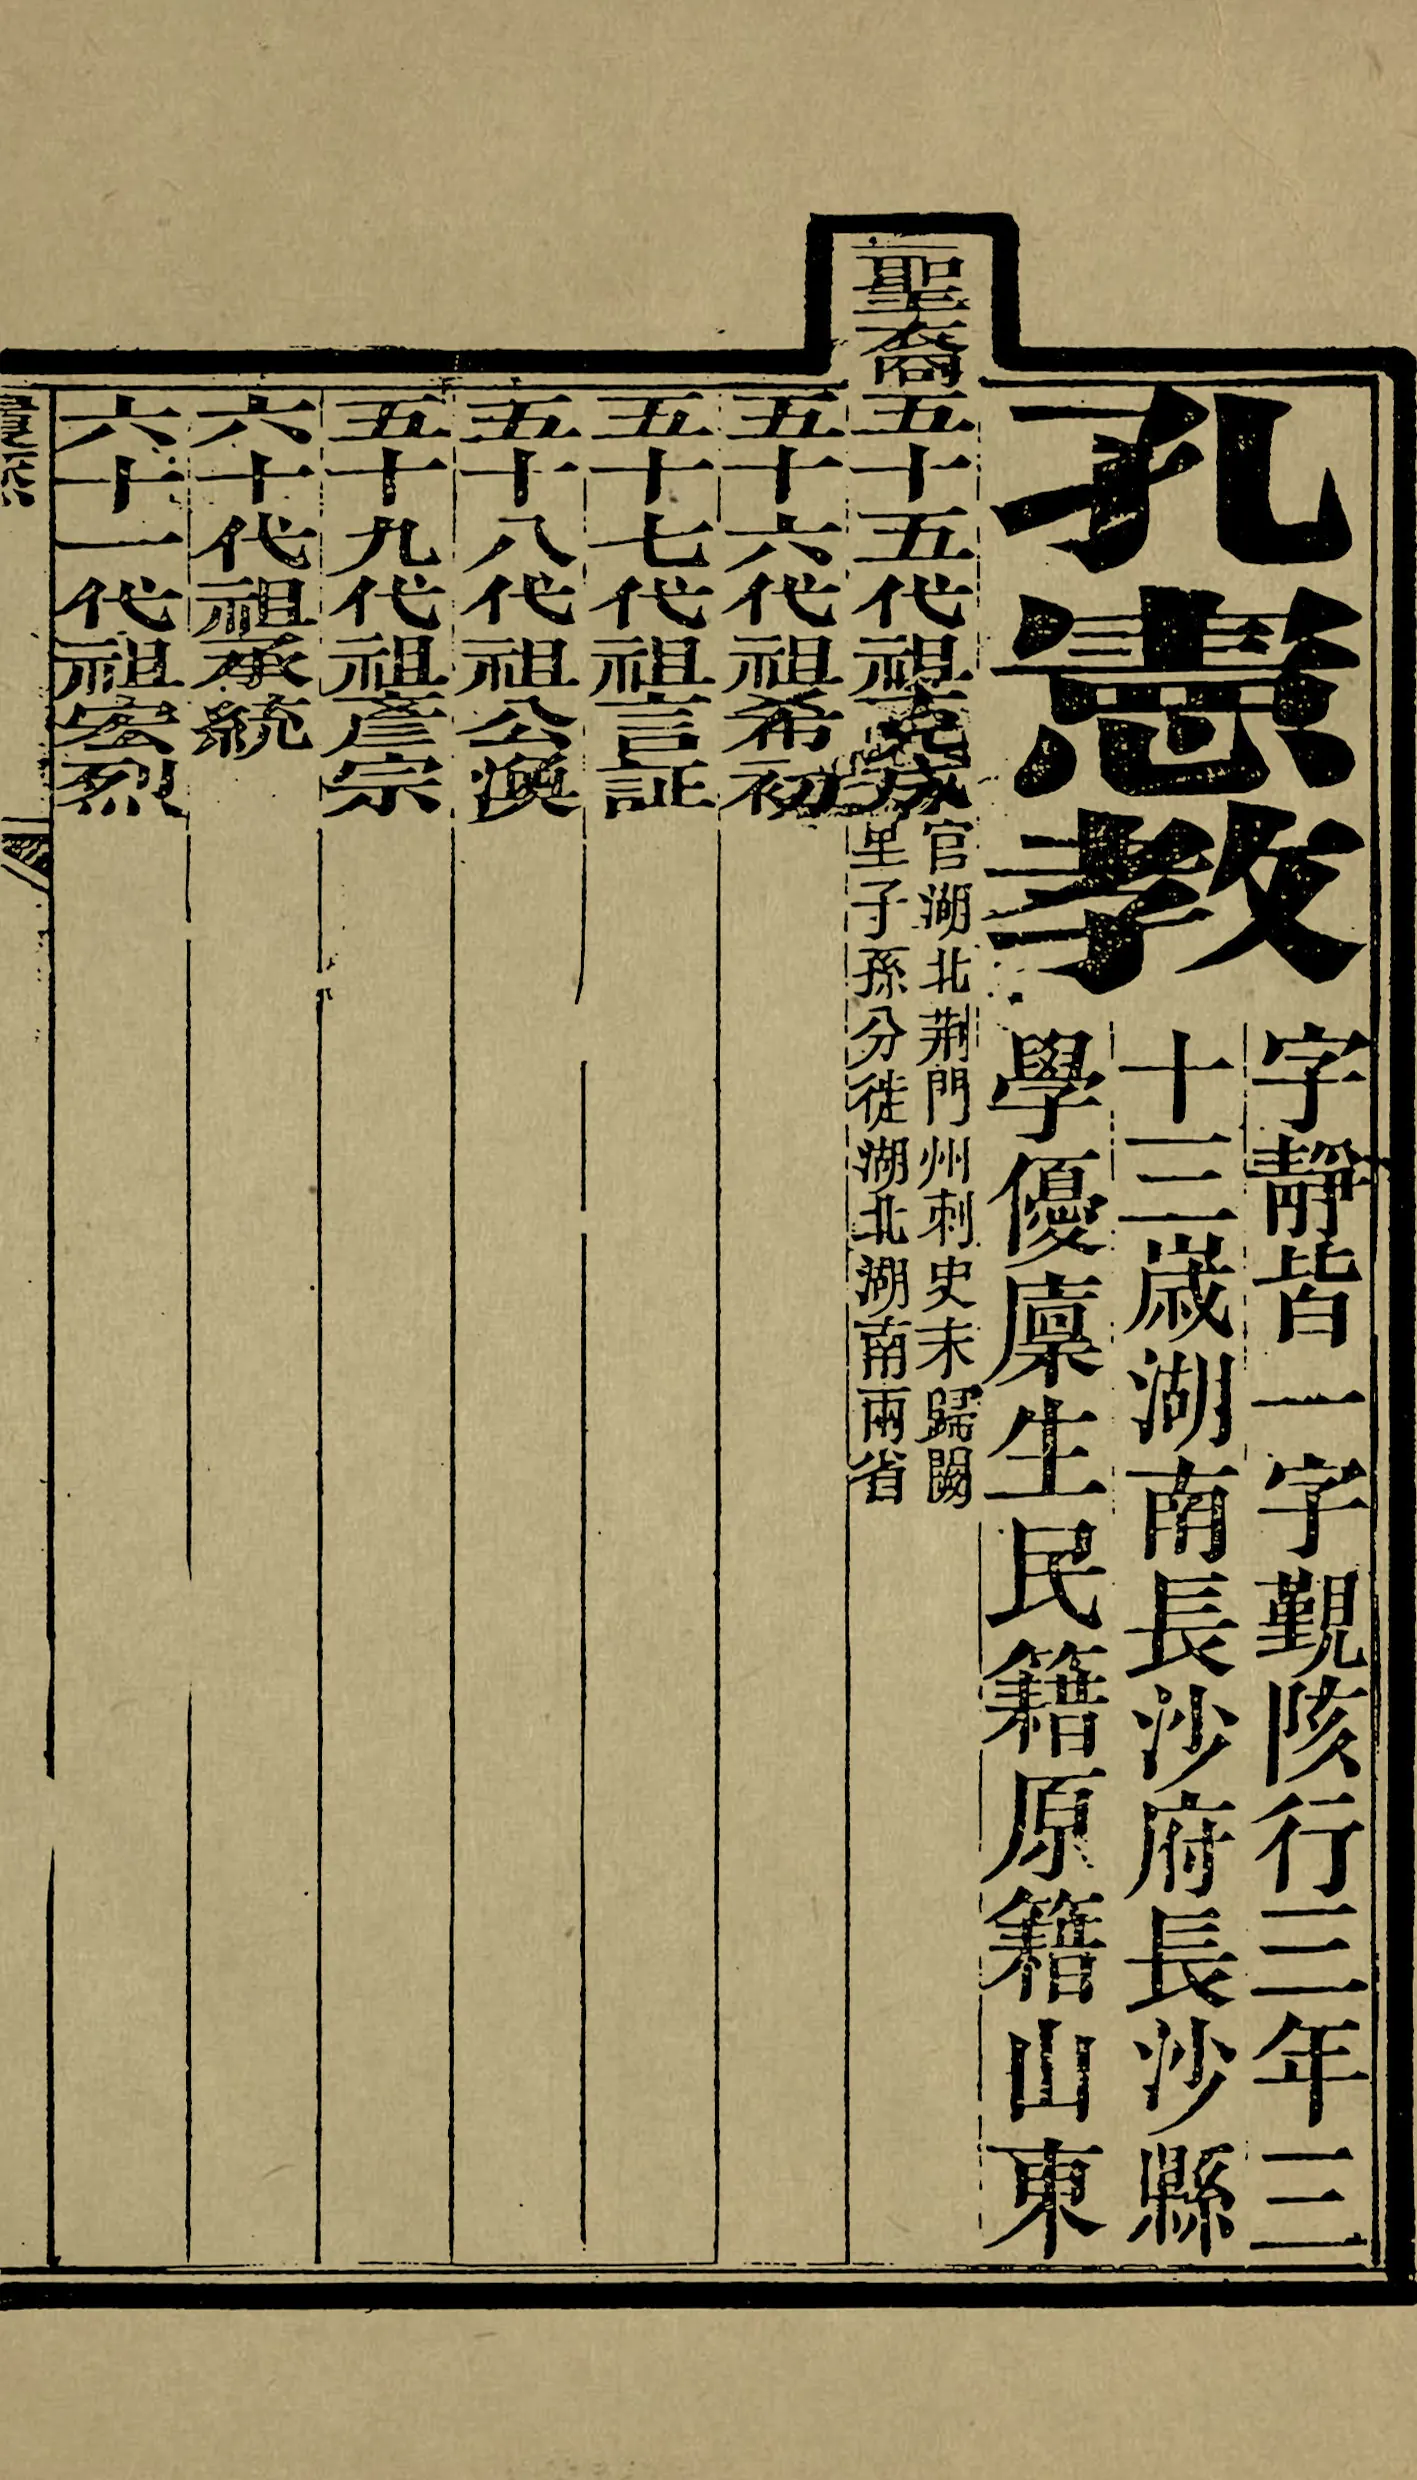 孔憲教
字靜皆一字觐陔行三年三
十三歲湖南長沙府長沙縣
學優廩生民籍原籍山東
聖裔五十五代祖克成
官湖北荆門州刺史未歸闕
里子孫分徙湖北湖南兩省
五十六代祖希初
五十七代祖言証
五十八代祖公渙
五十九代祖彥宗
六十代祖承統
六十一代祖宏烈